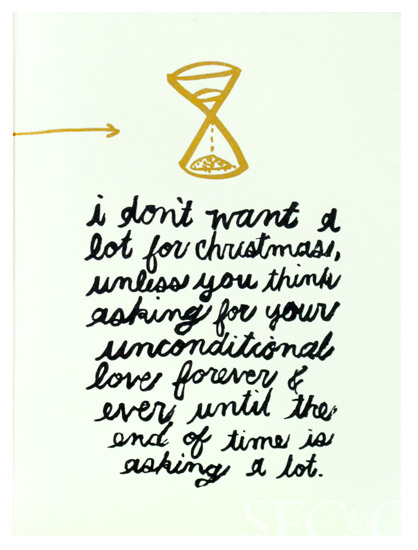 i don't want a
lot for christmas,
unless you think
asking for your
unconditional
love forever &
ever until the
end of time is
asking a lot.
SFC&G